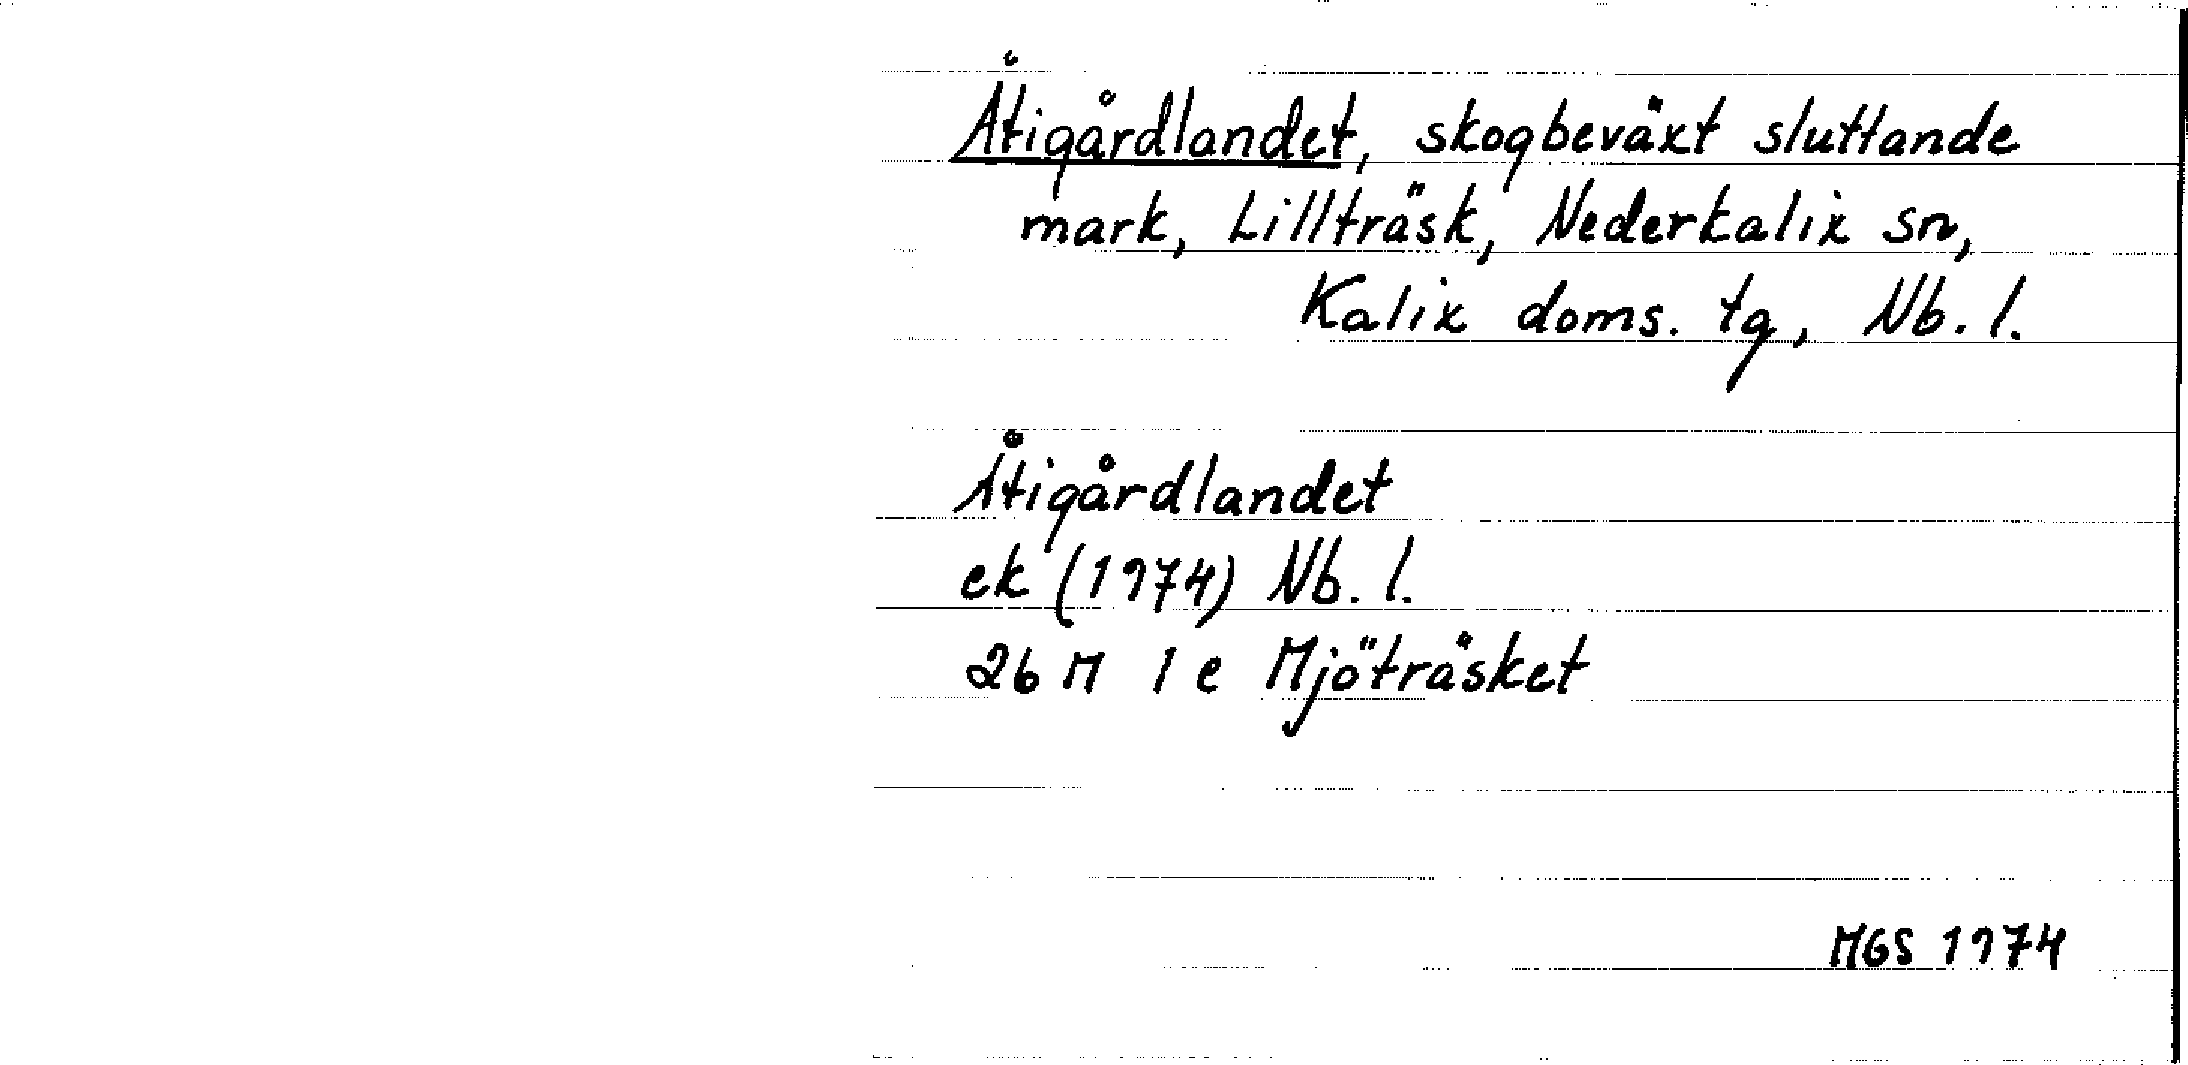 Åtigårdlandet, skogbeväxt sluttande
mark, Lillträsk, Nederkalix sn,
Kalix doms. tg, Nb. l.
Åtigårdlandet
ek (1974) Nb. l.
26 M 1 e Mjöträsket
MGS 1974